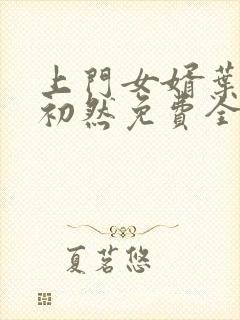 上門女婿葉
初然免費全
夏茗悠